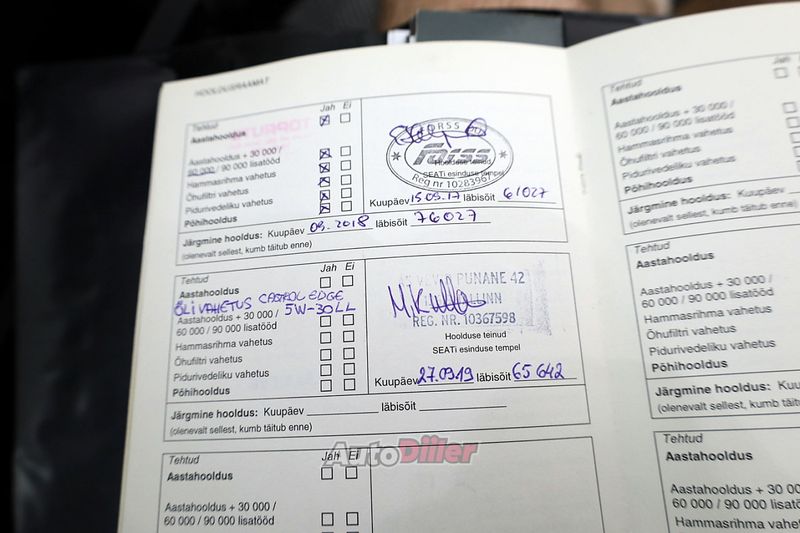 HOOLDUSRAAMAT
Tehtud
Jah Ei
Aastahooldus
Aastahooldus + 30 000 /
60 000 / 90 000 lisatööd
Hammasrihma vahetus
Õhufiltri vahetus
Pidurivedeliku vahetus
Põhihooldus
FORSS
Forss
Hoolduse teinud
SEATi esinduse tempel
Reg nr 10283967
Kuupäev 15.09.17 läbisõit 61027
Järgmine hooldus: Kuupäev 09.2018 läbisõit 76027
(olenevalt sellest, kumb täitub enne)
Tehtud
Jah Ei
Aastahooldus
ÕLIVAHETUS CASTROL EDGE
5W-30LL
Aastahooldus + 30 000 /
60 000 / 90 000 lisatööd
Hammasrihma vahetus
Õhufiltri vahetus
Pidurivedeliku vahetus
Põhihooldus
PUNANE 42
LLINN
REG. NR. 10367598
Hoolduse teinud
SEATi esinduse tempel
Kuupäev 27.09.19 läbisõit 65 642
Järgmine hooldus: Kuupäev läbisõit
(olenevalt sellest, kumb täitub enne)
AutoDiiler
Tehtud
Jah Ei
Aastahooldus
Aastahooldus + 30 000 /
60 000 / 90 000 lisatööd
Tehtud
Jah
Aastahooldus
Aastahooldus + 30 000 /
60 000 / 90 000 lisatööd
Hammasrihma vahetus
Õhufiltri vahetus
Pidurivedeliku vahetus
Põhihooldus
Järgmine hooldus: Kuupäev
(olenevalt sellest, kumb täitub enne)
Tehtud
Aastahooldus
Aastahooldus + 30 000 /
60 000 / 90 000 lisatööd
Hammasrihma vahetus
Õhufiltri vahetus
Pidurivedeliku vahetus
Põhihooldus
Järgmine hooldus: Kuu
(olenevalt sellest, kumb täitu
Tehtud
Aastahooldus
Aastahooldus + 30 0
60 000 / 90 000 lisatö
Hammasrihma vahet